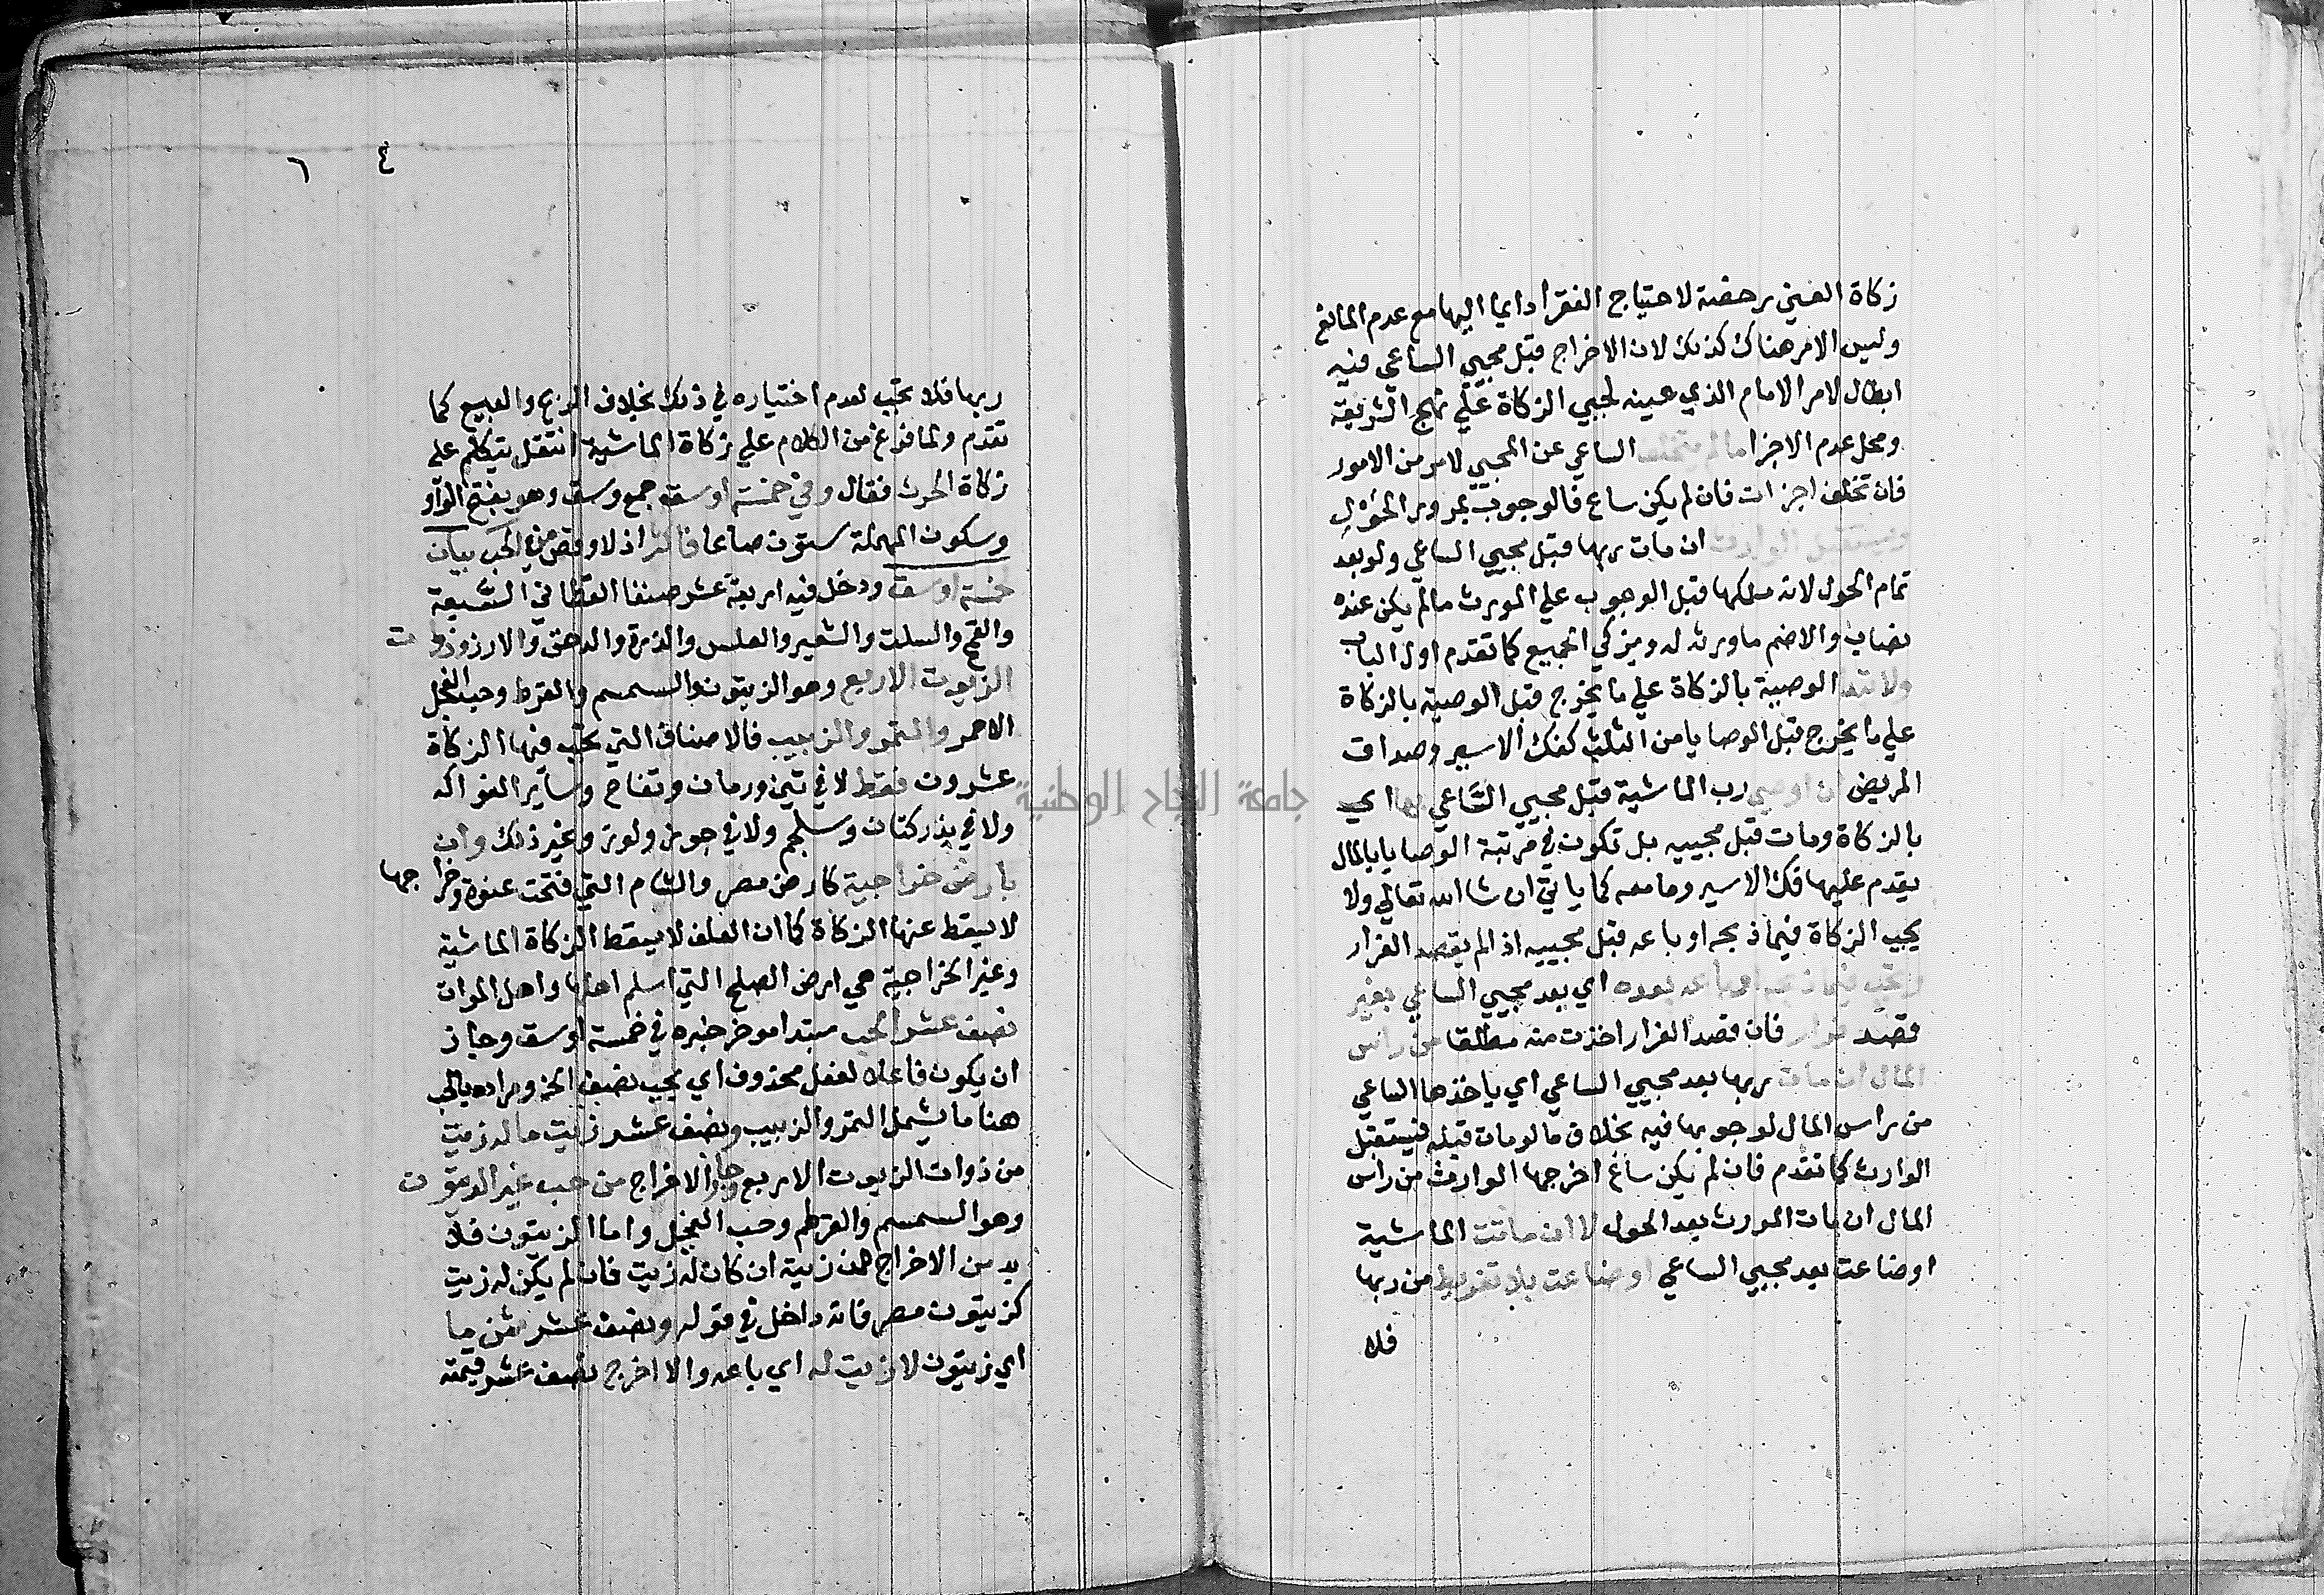 زكاة العين رخصة لاحتياج الفقرا دايما اليها مع عدم المانع
وليس الامر هناك كذلك لان الاخراج قبل مجيي الساعي فيه
ابطال لامر الامام الذي عينه لجبي الزكاة علي نهج الشريعة
ومحل عدم الاجزا مالم يتخلف الساعي عن المجيي لامر من الامور
فان تخلف اجزات فان لم يكن ساع فالوجوب بمرور الحول
ويستقبل الوارث ان مات ربها قبل مجيي الساعي ولو بعد
تمام الحول لانه ملكها قبل الوجوب علي المورث مالم يكن عنده
نصاب والاضم ما ورثه له ويزكي الجميع كما تقدم اول الباب
ولا تبدا الوصية بالزكاة علي ما يخرج قبل الوصية بالزكاة
علي ما يخرج قبل الوصايا من الثلث كفك الاسير وصداق
المريض ان اوصي رب الماشية قبل مجيي الساعي بها اي
بالزكاة ومات قبل مجييه بل تكون في مرتبة الوصايا بالمال
يقدم عليها فك الاسير وما معه كما ياتي ان شا الله تعالي ولا
يجب الزكاة فيما ذبحه او باعه قبل مجييه اذ الم يقصد الفرار
وتجب فيما ذبحه او باعه بعده اي بعد مجيي الساعي بغير
قصد فرار فان قصد الفرار اخذت منه مطلقا من راس
المال ان مات ربها بعد مجيي الساعي اي ياخذها الساعي
من راس المال لوجوبها فيه بخلاف ما لو مات قبله فيستقبل
الوارث كما تقدم فان لم يكن ساع اخرجها الوارث من راس
المال ان مات المورث بعد الحول لا ان ماتت الماشية
او ضاعت بعد مجيي الساعي او ضاعت بلا تفريط من ربها
فلا
٤ ٦
ربها فلا تجب لعدم اختياره في ذلك بخلاف الذبح والبيع كما
تقدم ولما فرغ من الكلام علي زكاة الماشية انتقل يتكلم علي
زكاة الحرث فقال وفي خمسة اوسق جمع وسق وهو بفتح الواو
وسكون المهملة ستون صاعا فاكثر اذ لا وقص في الحب بيان
خمسة اوسق ودخل فيه اربعة عشر صنفا القطاني السبعة
والقمح والسلت والشعير والعلس والذرة والدخن والارز وذوات
الزيوت الاربع وهو الزيتون والسمسم والقرطم وحب الفجل
الاحمر والتمر والزبيب فالاصناف التي تجب فيها الزكاة
عشرون فقط لا في تين ورمان وتفاح وساير الفواكه
ولا في بذر كتان وسلجم ولا في جوز ولوز وغير ذلك وان
بارض خراجية كارض مصر والشام التي فتحت عنوة وخراجها
لا يسقط عنها الزكاة كما ان العلف لا يسقط الزكاة الماشية
وغير الخراجية هي ارض الصلح التي اسلم اهلها واهل الموات
نصف عشر الحب مبتدا موخر خبره في خمسة اوسق وجاز
ان يكون فاعلا لفعل محذوف اي يجب نصف الخ ومراده بالحب
هنا ما يشمل التمر والزبيب ونصف عشر زيت ما له زيت
من ذوات الزيوت الاربع وجاز الاخراج من حب غير الزيتون
وهو السمسم والقرطم وحب الفجل واما الزيتون فلا
بد من الاخراج من زيته ان كان له زيت فان لم يكن له زيت
كزيتون مصر فانه داخل في قوله ونصف عشر ثمن ما
اي زيتون لا زيت له اي باعه والا اخرج نصف عشر قيمته
جامعة النجاح الوطنية